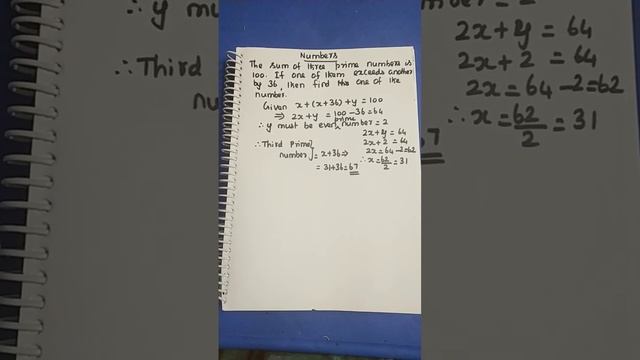 Numbers
The sum of three prime numbers is
100. If one of them exceeds another
by 36, then find the one of the
number.
Given x+(x+36)+y=100
⇒ 2x+y = 100-36=64
∴ y must be even prime number = 2
2x+y=64
2x+2=64
2x=64-2=62
∴ x=62/2=31
∴ Third prime
number = x+36⇒
= 31+36=67
∴ y mus
∴ Third
nu
2x+y=64
2x+2=64
2x=64-2=62
∴ x=62/2=31
7